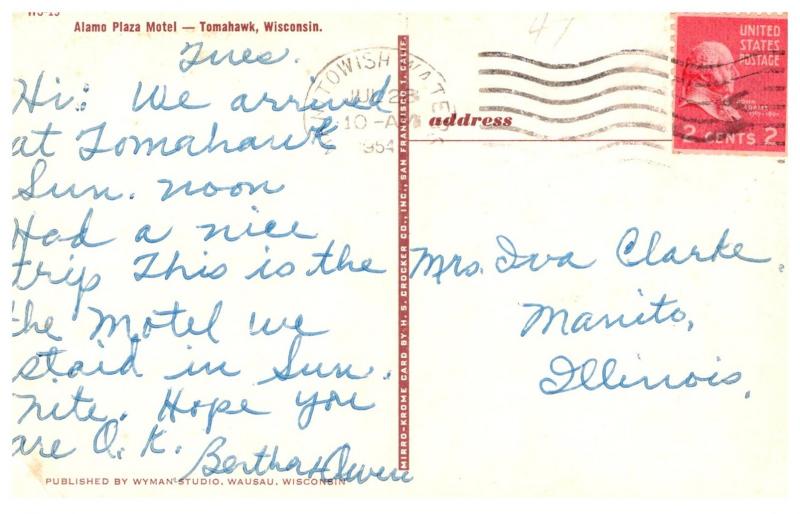 WS-15
Alamo Plaza Motel — Tomahawk, Wisconsin.
Tues.
Hi: We arrived
at Tomahawk
Sun. noon
Had a nice
trip This is the
the Motel we
staid in Sun.
nite. Hope you
are O. K.
Bertha + Owen
PUBLISHED BY WYMAN STUDIO, WAUSAU, WISCONSIN
MIRRO-KROME CARD BY H. S. CROCKER CO., INC., SAN FRANCISCO 1, CALIF.
TOWISH WATERS
10-AM
1954
address
47
UNITED
STATES
POSTAGE
JOHN
ADAMS
2 CENTS 2
Mrs. Iva Clarke.
Manito,
Illinois,